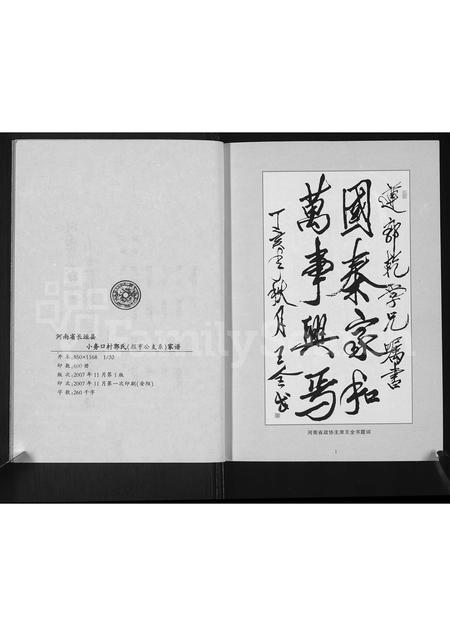 河南省长垣县
小务口村郭氏(拉亨公支系)家谱
开本:850×1168 1/32
印数:600册
版次:2007年11月第1版
印次:2007年11月第一次印刷(安阳)
字数:260千字
遵郭乾学兄嘱书
國泰家和
萬事興焉
丁亥年秋月王全书
河南省政协主席王全书题词
1